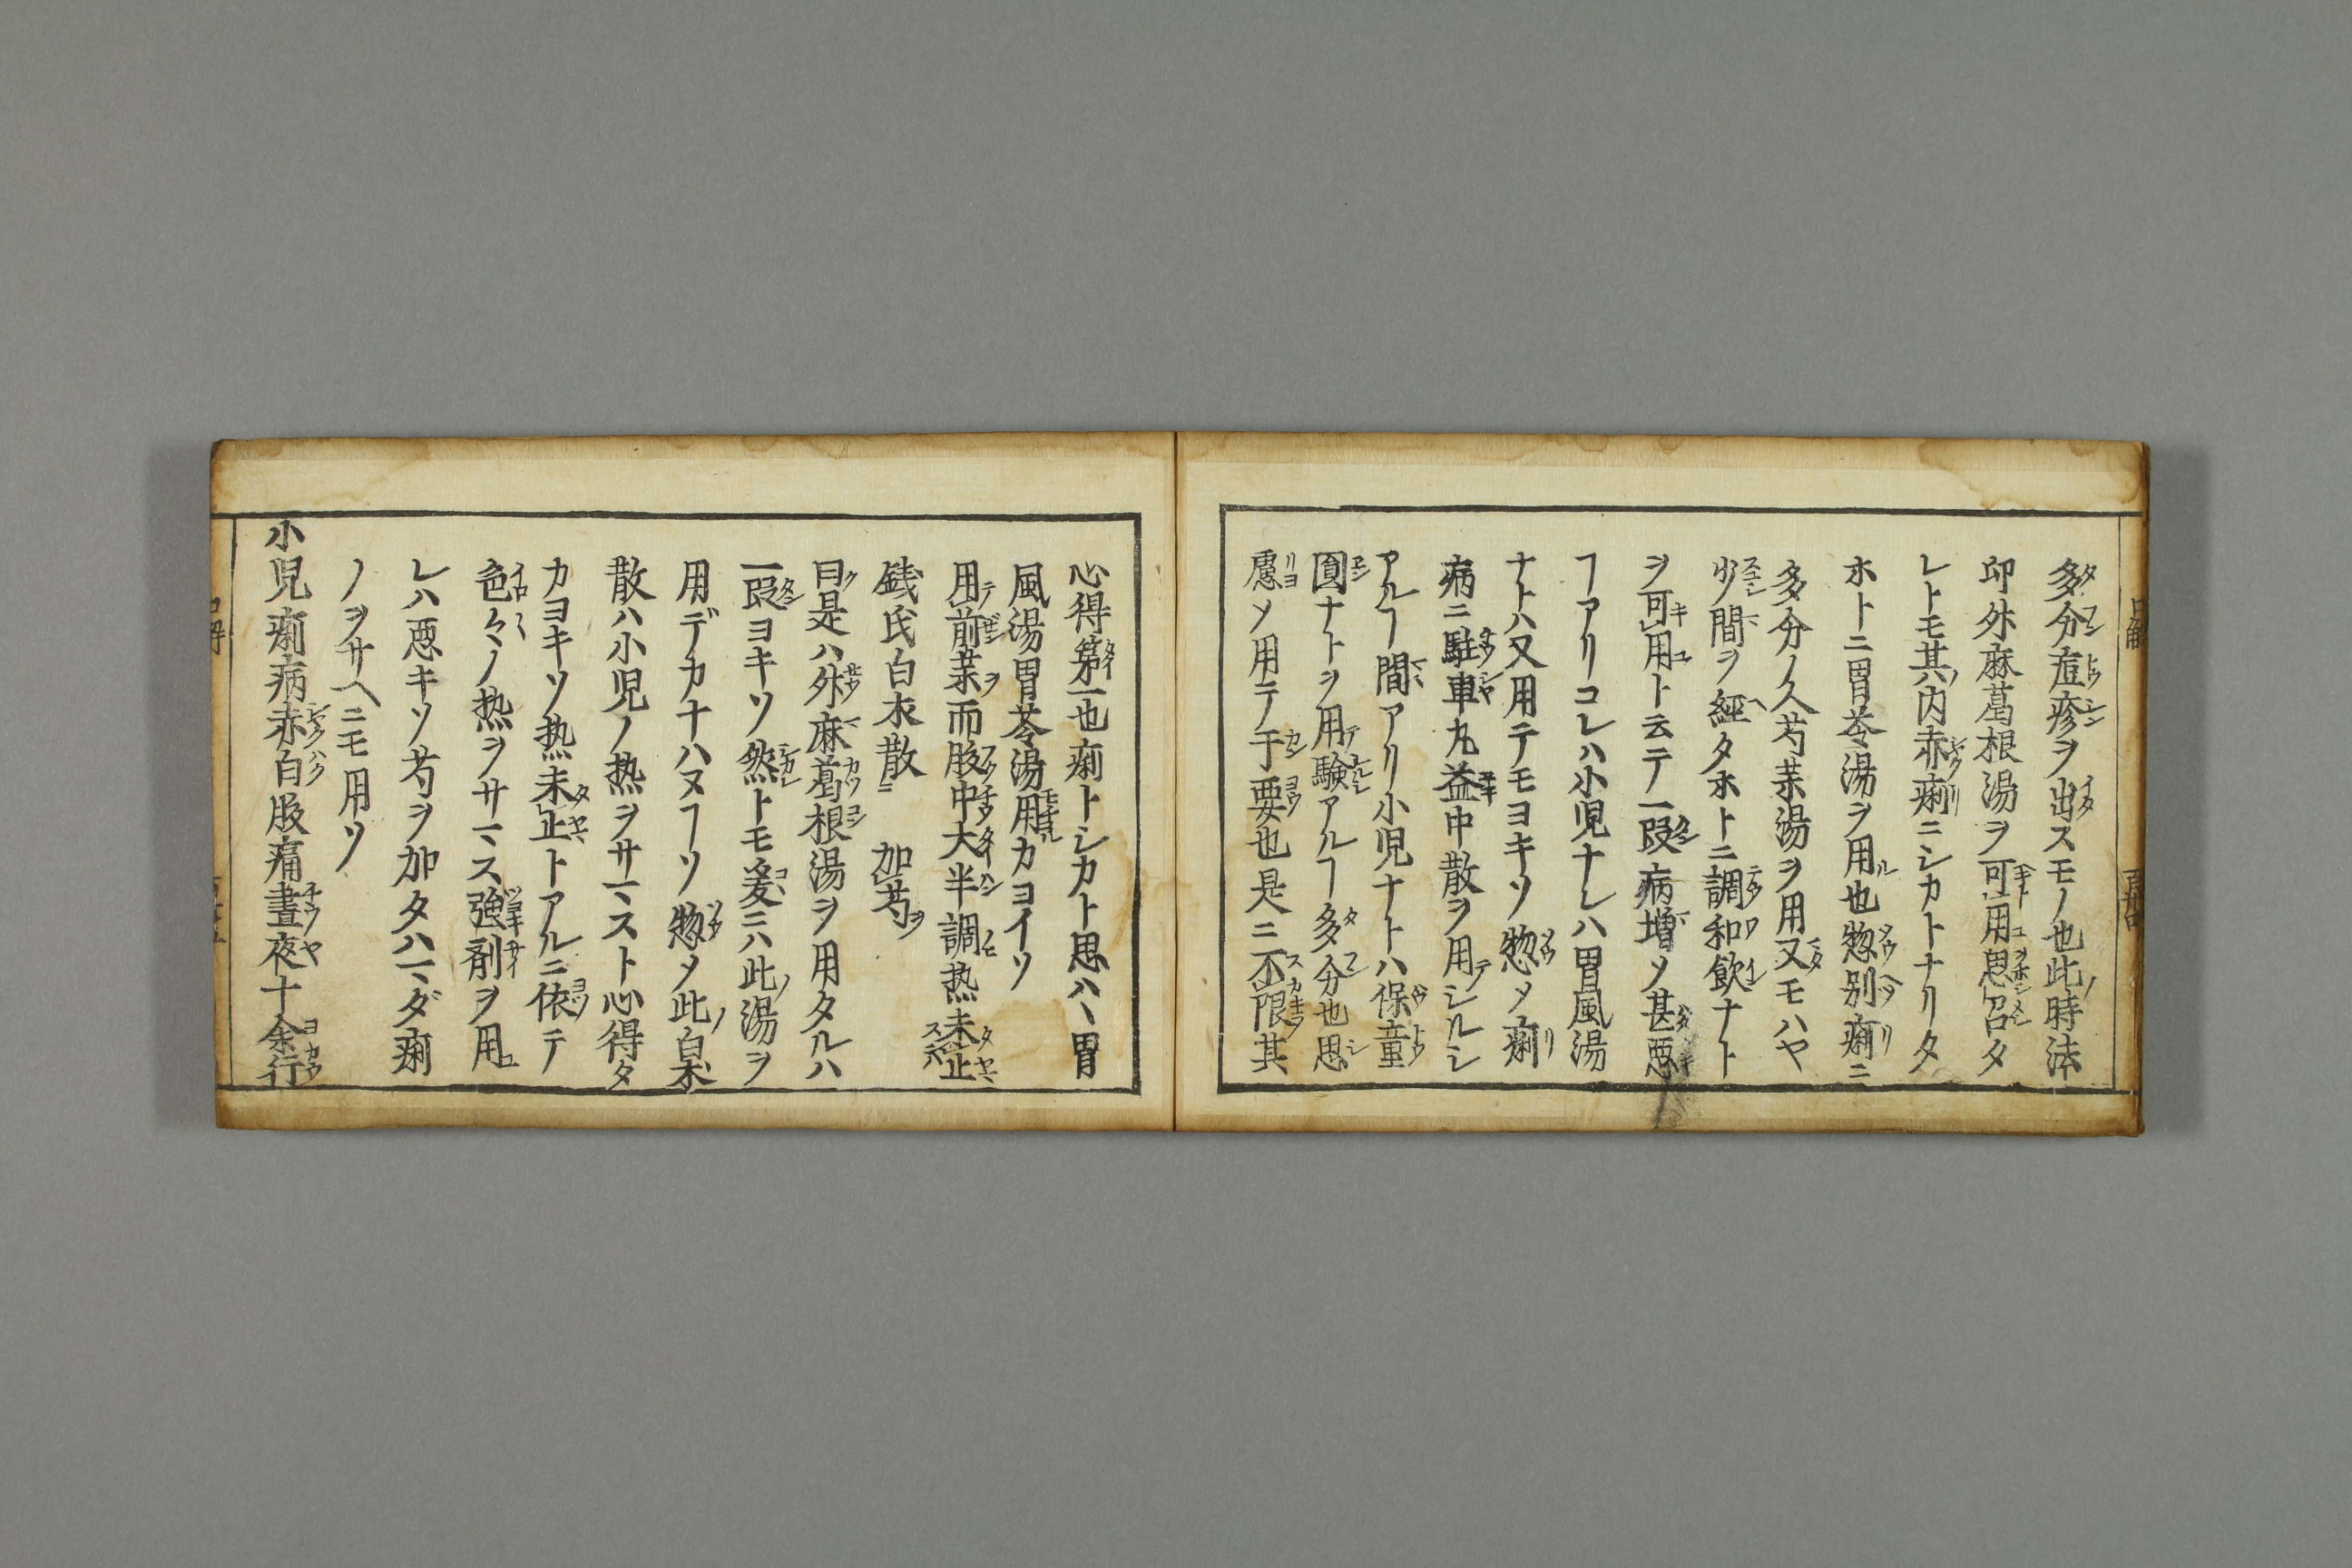 多分痘疹ヲ出スモノ也此時法
印升麻葛根湯ヲ可用思召タ
レトモ其内赤痢ニシカトナリタ
ホトニ胃苓湯ヲ用也惣別痢ニ
多分ノ久芍薬湯ヲ用又モハヤ
少間ヲ經タホトニ調和飲ナト
ヲ可用ト云テ一段病増ソ甚悪
ヿアリコレハ小児ナレハ胃風湯
ナトハ又用テモヨキソ惣メ痢
病ニ駐車丸益中散ヲ用テシルシ
アルヿ間アリ小児ナトハ保童
圓ナトヲ用テ験アルヿ多分也思
慮メ用テ干要也是ニ不限其
心得第一也痢トシカト思ハヽ胃
風湯胃苓湯用カヨイソ
用前薬而股中大半調熱未止
銭氏白朮散ニ 加芍ヲ
曰是ハ升麻葛根湯ヲ用タルハ
一段ヨキソ然トモ爰ニハ此湯ヲ
用デカナハヌヿソ惣メ此白朮
散ハ小児ノ熱ヲサマスト心得タ
カヨキソ熱未止トアルニ依テ
色々ノ熱ヲサマス強剤ヲ用
レハ悪キソ芍ヲ加タハマダ痢
ノヲサヘニモ用ソ
小児痢病赤白股痛晝夜十余行